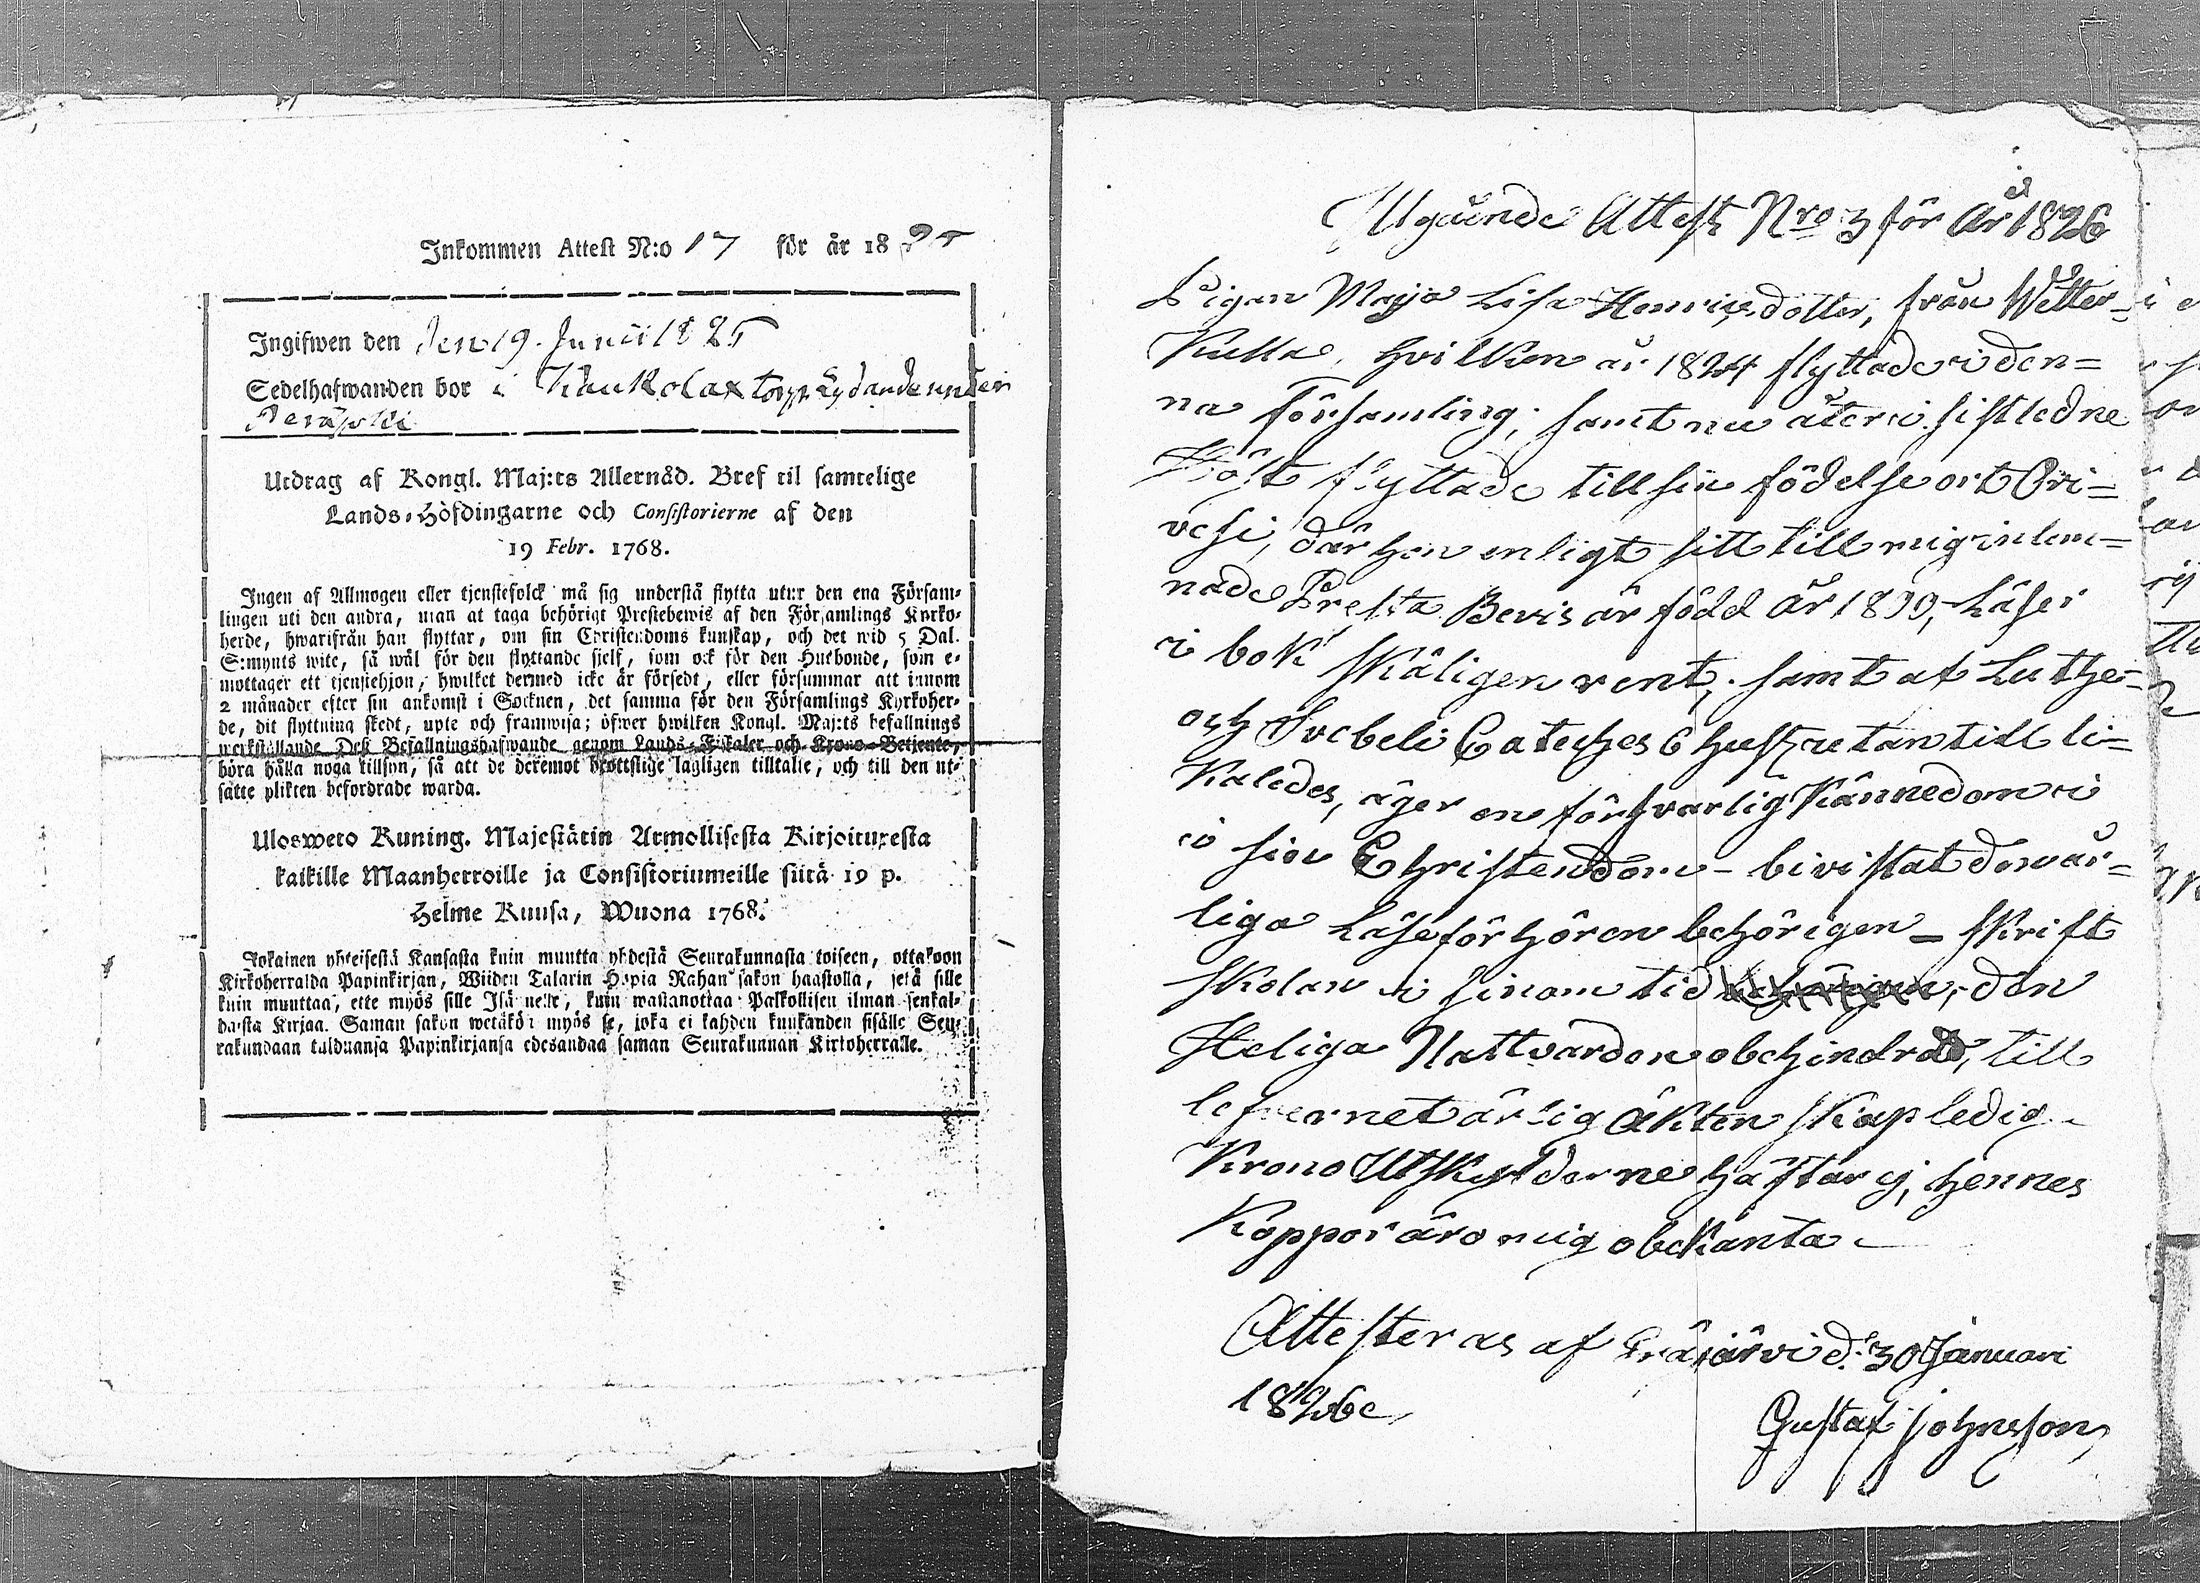 Inkommen Attest N:o 17 för år 1825
Ingifwen den den 19. Junii 1825
Sedelhafwanden bor i Kaukolax torp Lydande under
Peräsoki
Utdrag af Kongl. Maj:ts Allernåd. Bref til samtelige
Lands-Höfdingarne och Consistorierne af den
19 Febr. 1768.
Ingen af Allmogen eller tjenstefolck må sig understå flytta utur den ena Försam-
lingen uti den andra, utan at taga behörigt Prestebewis af den Församlings Kyrko-
herde, hwarifrån han flyttar, om sin Christendoms kunskap, och det wid 5 Dal.
S:mynts wite, så wäl för den flyttande sjelf, som ock för den Husbonde, som e-
mottager ett tjenstehjon, hwilket dermed icke är försedt, eller försummar att innom
2 månader efter sin ankomst i Socknen, det samma för den Församlings Kyrkoher-
de, dit flyttning skedt, upte och framwisa; öfwer hwilken Kongl. Maj:ts befallnings
werkställande Deß Befallningshafwande genom Lands-Fiskaler och Krono-Betjente,
böra hålla noga tillsyn, så att de deremot brottslige lagligen tilltalte, och till den ut-
satte plikten befordrade warda.
Ulosweto Kuning. Majestätin Armollisesta Kirjoituresta
kaikille Maanherroille ja Consistoriumeille siitä 19 p.
Helme Kuusa, Wuona 1768.
Jokainen yhteisestä Kansasta kuin muutta yhdestä Seurakunnasta toiseen, ottakoon
Kirkoherralda Papinkirjan, Wiiden Talarin Hopia Rahan sakon haastolla, sekä sille
kuin muuttaa, ette myös sille Isännelle, kuin wastanottaa Palkollisen ilman senkal-
daista Kirjaa. Saman sakon wetäkön myös se, joka ei kahden kuukauden sisälle Seu-
rakundaan tulduansa Papinkirjansa edesandaa saman Seurakunnan Kirkoherralle.
Utgående Attest Nro 3 för År 1826
Pigan Maja Lisa Henricsdotter, från Wetter-
Kulla, hvilken år 1824 flyttade i den-
na Församling, samt nu åter i sistledne
Höst flyttade till sin födelse ort Ori-
vesi, där hon enligt sitt till mig inlem-
nade Presta Bevis är född År 1899, Läser
i bok skäligen rent, samt af Luthe-
och Svebeli Cateches 6 hufz utan till li-
kaledes, äger en försvarlig Kännedom i
i sin Christendom - bivistat de vår-
liga Läseförhören behörigen - skrift
skolan i sinom tid behörigen, den
Heliga Nattvarden obehindrad, till
lefvernet ärlig Äkten skap ledig
Krono Utskylderne häftar ej, hennes
Koppor äro mig obekanta
Attesteras af Eräjärvi d. 30 Januari
1826
Gustaf Johnsson